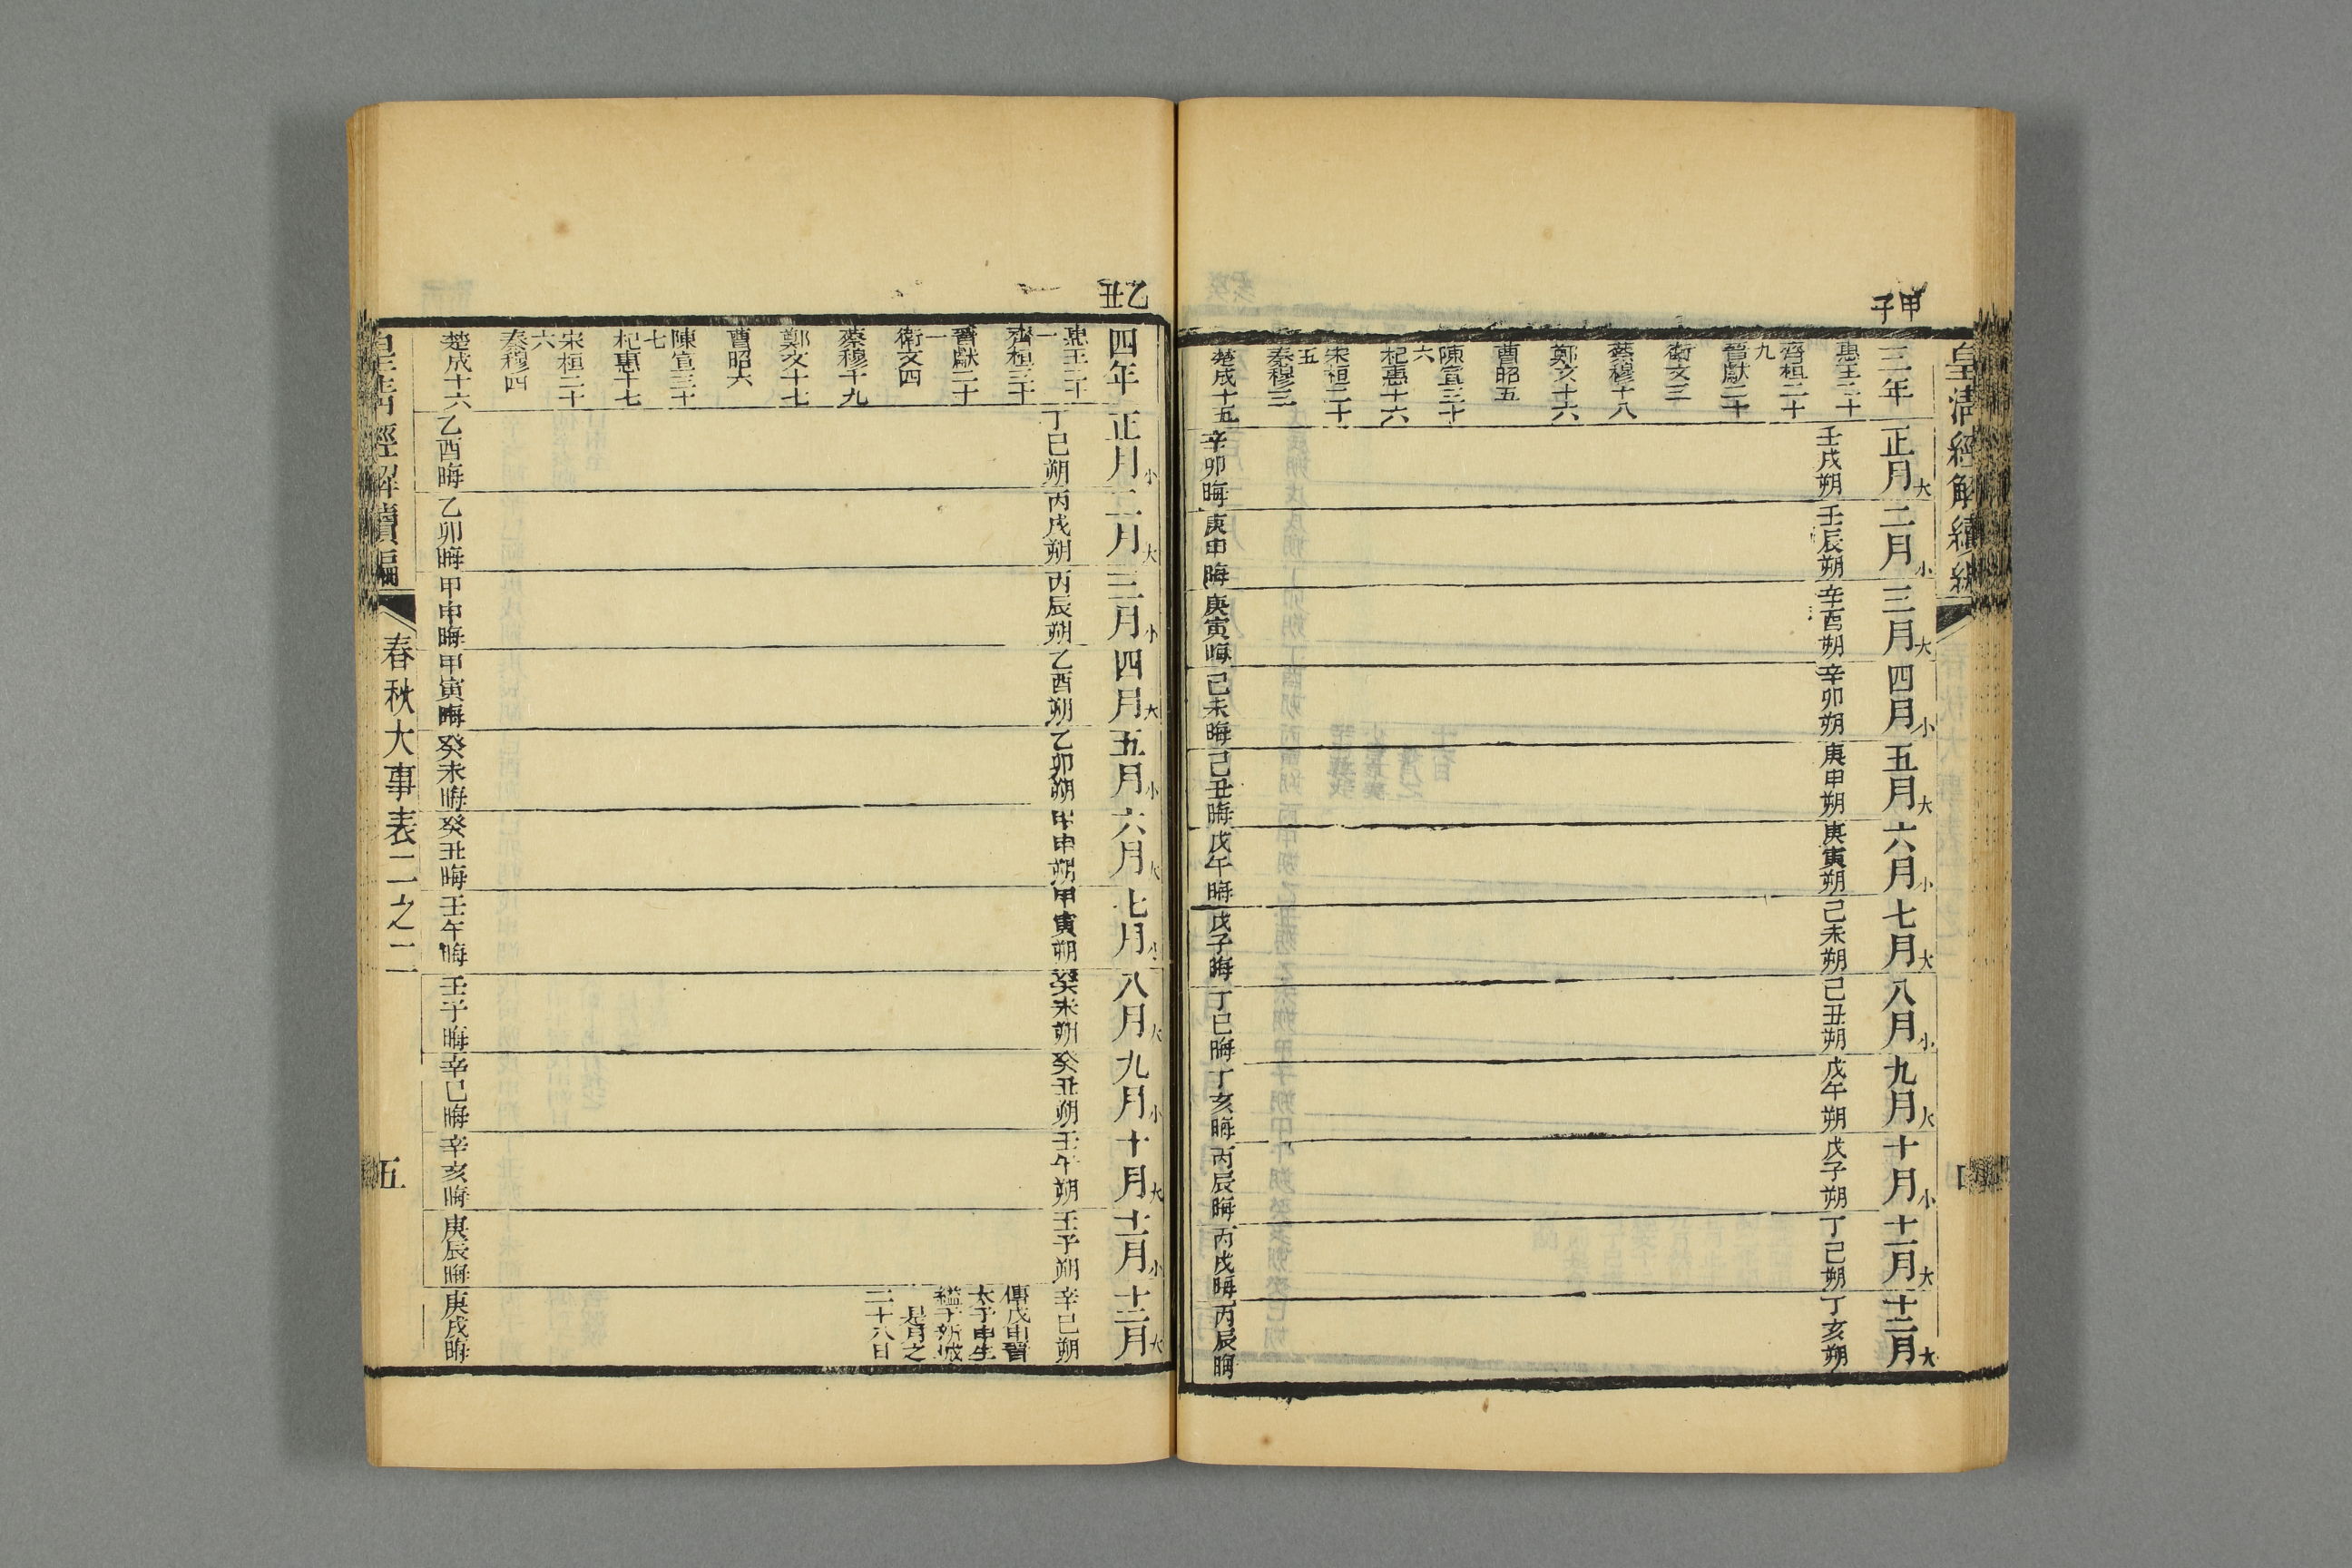 皇清經解續編
甲子
三年
惠王二十
齊桓二十
九
晉獻二十
衛文三
蔡穆十八
鄭文十六
曹昭五
陳宣三十
六
杞惠十六
宋桓二十
五
秦穆三
楚成十五
正月大
壬戌朔
辛卯晦
二月小
壬辰朔
庚申晦
三月大
辛酉朔
庚寅晦
四月小
辛卯朔
己未晦
五月大
庚申朔
己丑晦
六月小
庚寅朔
戊午晦
七月大
己未朔
戊子晦
八月小
己丑朔
丁巳晦
九月大
戊午朔
丁亥晦
十月小
戊子朔
丙辰晦
十一月大
丁巳朔
丙戌晦
十二月大
丁亥朔
丙辰晦
乙丑
四年
惠王二十
一
齊桓三十
晉獻二十
一
衛文四
蔡穆十九
鄭文十七
曹昭六
陳宣三十
七
杞惠十七
宋桓二十
六
秦穆四
楚成十六
正月小
丁巳朔
乙酉晦
二月大
丙戌朔
乙卯晦
三月小
丙辰朔
甲申晦
四月大
乙酉朔
甲寅晦
五月小
乙卯朔
癸未晦
六月大
甲申朔
癸丑晦
七月小
甲寅朔
壬午晦
八月大
癸未朔
壬子晦
九月小
癸丑朔
辛巳晦
十月大
壬午朔
辛亥晦
十一月小
壬子朔
庚辰晦
十二月大
辛巳朔
傳戊申晉
太子申生
縊于新城
是月之
二十八日
庚戌晦
皇清經解續編
春秋大事表二之二
五